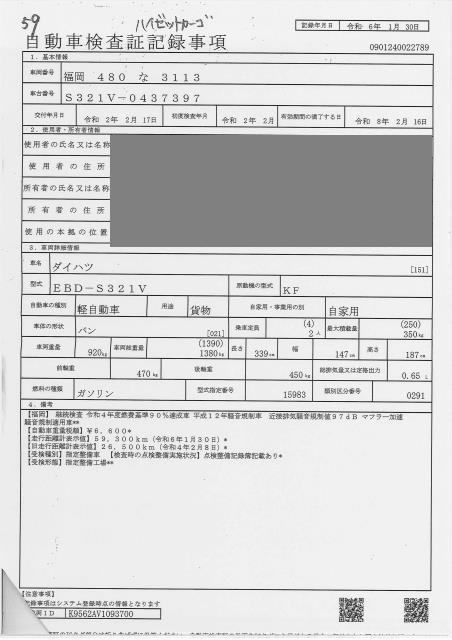 59
ハイゼットカーゴ
記録年月日 令和 6年 1月 30日
自動車検査証記録事項
0901240022789
1. 基本情報
車両番号 福岡 480 な 3113
車台番号 S321V-0437397
交付年月日 令和 2年 2月 17日 初度検査年月 令和 2年 2月 有効期間の満了する日 令和 8年 2月 16日
2. 使用者・所有者情報
使用者の氏名又は名称
使用者の住所
所有者の氏名又は名称
所有者の住所
使用の本拠の位置
3. 車両詳細情報
車名 ダイハツ [151]
型式 EBD-S321V 原動機の型式 KF
自動車の種別 軽自動車 用途 貨物 自家用・事業用の別 自家用
車体の形状 バン [021] 乗車定員 (4) 2人 最大積載量 (250) 350kg
車両重量 920kg 車両総重量 (1390) 1380kg 長さ 339cm 幅 147cm 高さ 187cm
前軸重 470kg 後軸重 450kg 総排気量又は定格出力 0.65L
燃料の種類 ガソリン 型式指定番号 15983 類別区分番号 0291
4. 備考
【福岡】 継続検査 令和4年度燃費基準90%達成車 平成12年騒音規制車 近接排気騒音規制値97dB マフラー加速
騒音規制適用車**
【自動車重量税額】¥6,600*
【走行距離計表示値】59,300km(令和6年1月30日)*
【旧走行距離計表示値】26,500km(令和4年2月8日)*
【受検種別】指定整備車 【検査時の点検整備実施状況】点検整備記録簿記載あり*
【受検形態】指定整備工場**
【注意事項】
記録事項はシステム登録時点の情報となります
K9562AV1093700